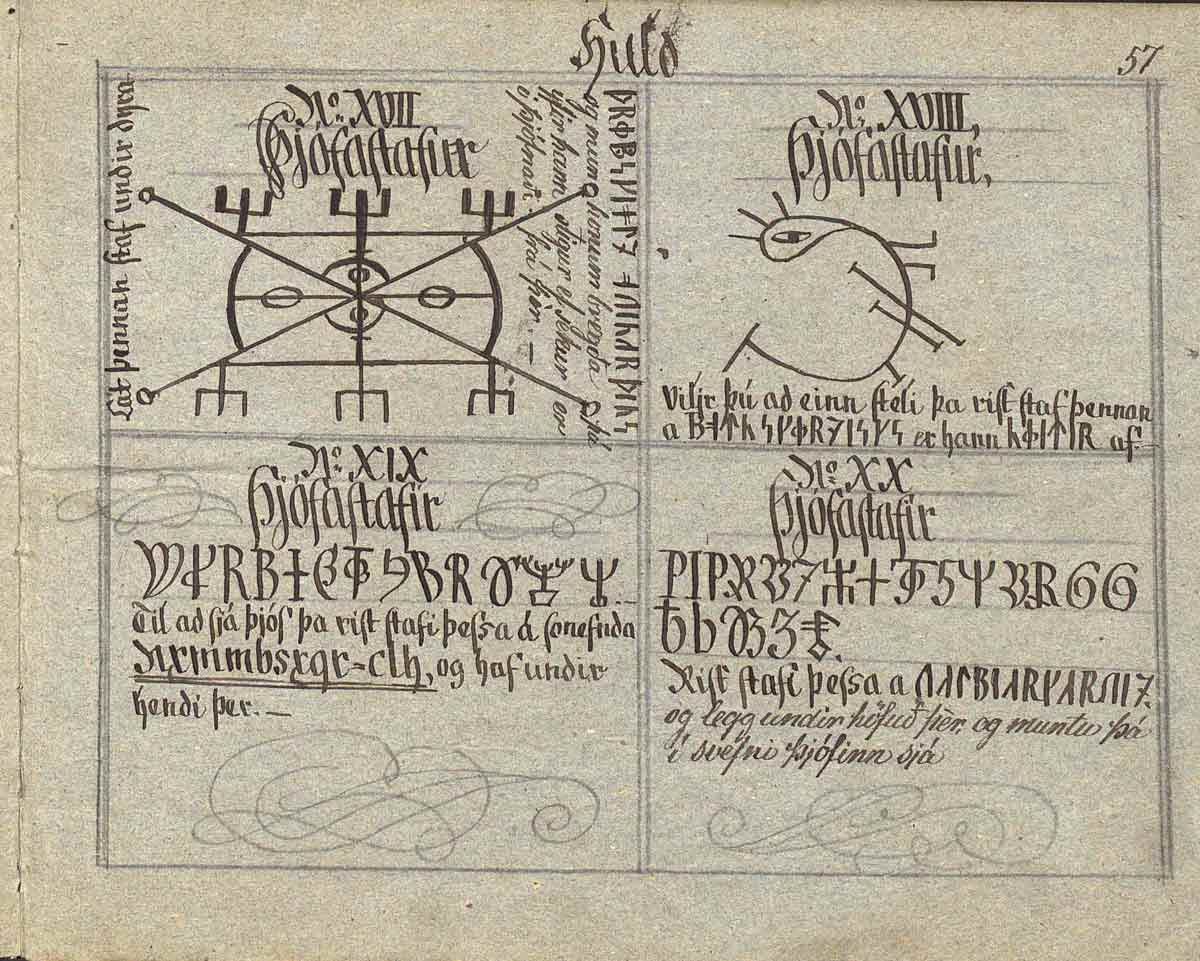 Huld
57
No. XVII
Þjófastafur
Lát þennan staf undir dyra
og mun honum bregða þá
yfir hann stigur ef sekur er
o þjófnaði frá þer. —
No. XVIII,
Þjófastafur,
Viljr þú ad einn steli þa rist staf þennan
a er hann af. —
No. XIX
Þjófastafir
Til ad sjá þjóf þa rist stafi þessa á sonefnda
Nxmmbsxqr=clh, og haf undir
hendi þer. —
No. XX
Þjófastafir
Rist stafi þessa a
og legg undir höfuð þèr, og muntu þá
í svefni þjófinn sjá